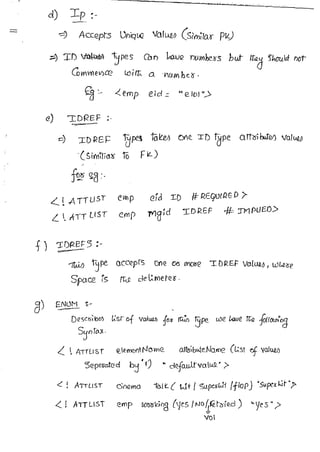 d) Ip :-
=> Accepts Unique Values (Similar PK)
=> ID Values types Can have numbers but they Should not
Commence with a number.
Eg :- <emp eid = "e101">
e) IDREF :-
=> IDREF Types takes one ID Type attributes values
(Similiar to FK)
for eg :-
<! ATTLIST emp eid ID #REQUIRED>
<! ATTLIST emp mgid IDREF # IMPLIED>
f) IDREFS :-
This type accepts one or more IDREF Values, where
Space is the delimeter.
g) ENUM :-
Describes list of values for this type we have the following
Syntax.
<! ATTLIST elementName attributeName (list of values
Seperated by '|') "default value" >
<! ATTLIST cinema talk ( hit | Superhit | flop) "Superhit">
<! ATTLIST emp working (yes | No | ) "Yes">
Val